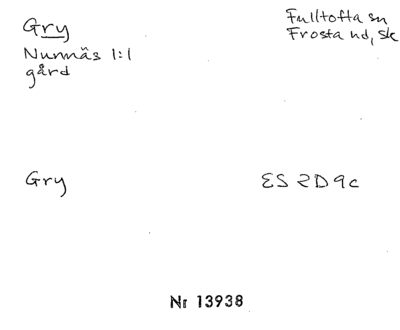 Gry
Fulltofta sn
Frosta hd, sk
Nunnäs 1:1
gård
Gry
ES 2D9c
Nr 13938